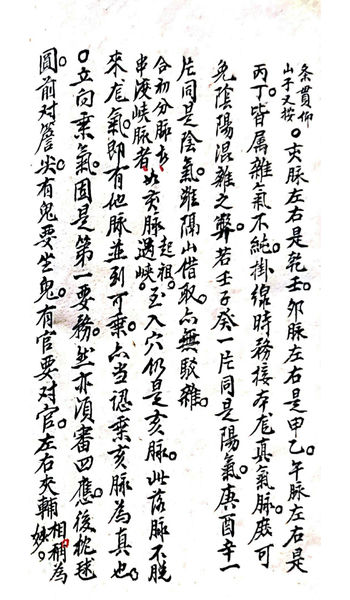 条貫仰
山子又按
○亥脉左右是乾壬○卯脉左右是甲乙○午脉左右是
丙丁○皆属雜氣不純○掛線時務接本龙真氣脉○庶可
免陰陽混雜之弊○若壬子癸一片同是陽氣○庚酉辛一
片同是陰氣○雖隔山借取○亦無駁雜○
合初分脉
串渡峡脉者○如亥脉起祖過峡○至入穴仍是亥脉○此落脉不脱
來龙氣○即有他脉並到可乘○亦当認乘亥脉為真也○
○立向乘氣固是第一要務○然亦須審四應○後枕毬
圓○前对簷尖○有鬼要坐鬼○有官要对官○左右夾輔相稱為
妙○